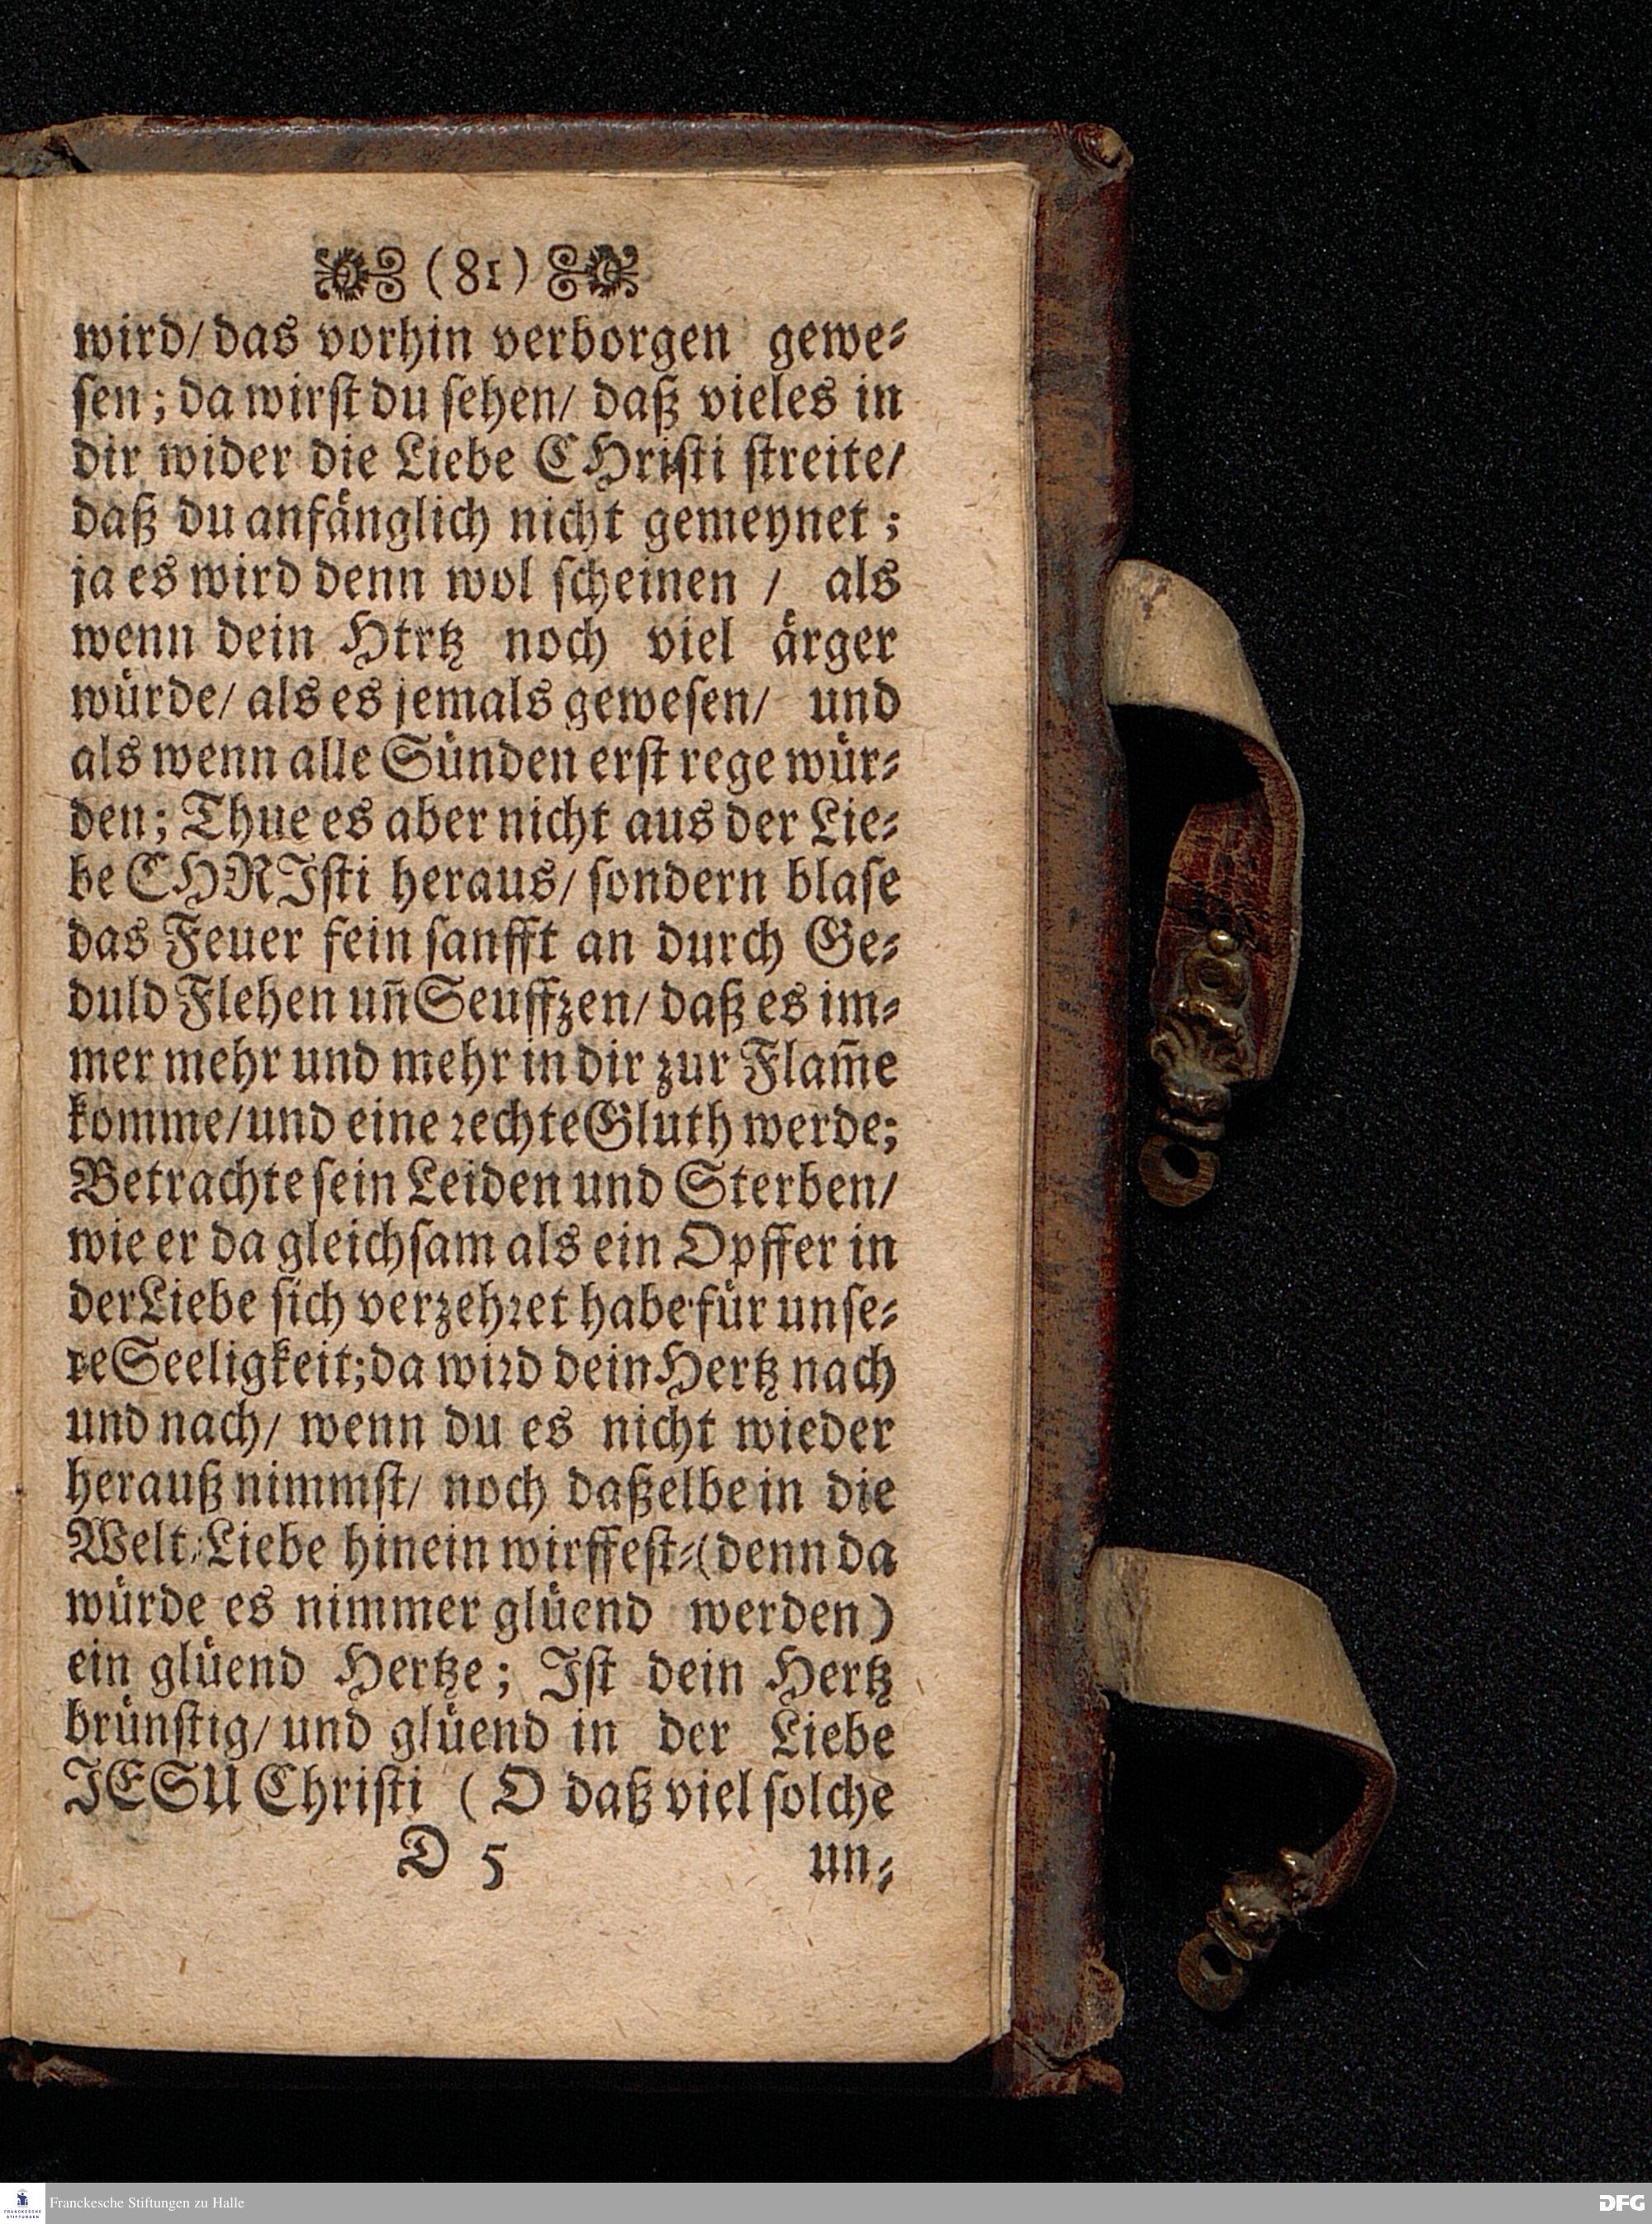 (81)
wird/ das vorhin verborgen gewe⸗
ſen; da wirſt du ſehen/ daß vieles in
dir wider die Liebe CHriſti ſtreite/
daß du anfänglich nicht gemeynet;
ja es wird denn wol ſcheinen / als
wenn dein Htrtz noch viel ärger
würde/ als es jemals geweſen/ und
als wenn alle Sünden erſt rege wür⸗
den; Thue es aber nicht aus der Lie⸗
be CHRIſti heraus/ ſondern blaſe
das Feuer fein ſanfft an durch Ge⸗
duld Flehen un̄ Seuffzen/ daß es im⸗
mer mehr und mehr in dir zur Flam̄e
komme/ und eine ꝛechte Gluth werde;
Betrachte ſein Leiden und Sterben/
wie er da gleichſam als ein Opffer in
der Liebe ſich verzehꝛet habe für unſe⸗
re Seeligkeit; da wiꝛd dein Hertz nach
und nach/ wenn du es nicht wieder
herauß nimmſt/ noch daßelbe in die
Welt⸗Liebe hinein wirffeſt⸗(denn da
würde es nimmer glüend werden)
ein glüend Hertze; Iſt dein Hertz
brünſtig/ und glüend in der Liebe
JESU Chriſti (O daß viel ſolche
D 5 un⸗
Franckesche Stiftungen zu Halle
FRANCKESCHE STIFTUNGEN
DFG